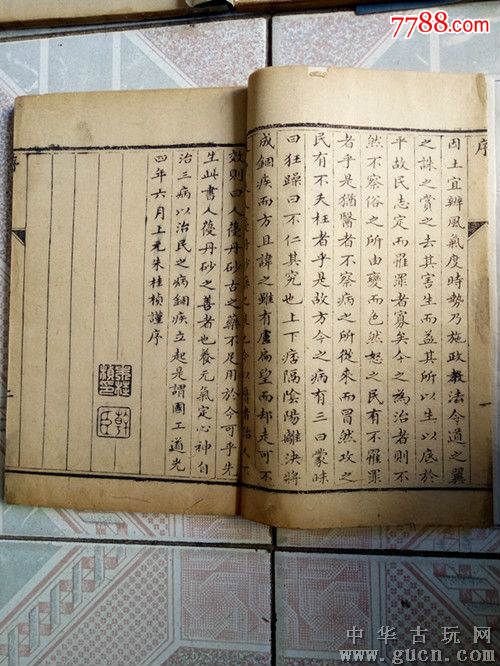 7788.com
序
因土宜辨風氣度時勢乃施政教法令道之翼
之誅之賞之去其害生而益其所以生以底於
平故民志定而罹罪者寡矣今之為治者則不
然不察俗之所由變而色然怒之民有不罹罪
者乎是猶醫者不察病之所從來而冒然攻之
民有不夭枉者乎是故方今之病有三曰蒙昧
曰狂躁曰不仁其究也上下痞隔陰陽離決將
成錮疾而方且諱之雖有盧扁望而却走可不
效則曰人復丹砂古之藥不足用於今可乎朱
生此書人復丹砂之善者也養元氣定心神自
治三病以治民之病錮疾立起是謂國工道光
四年六月上元朱桂楨謹序
中华古玩网
www.gucn.com